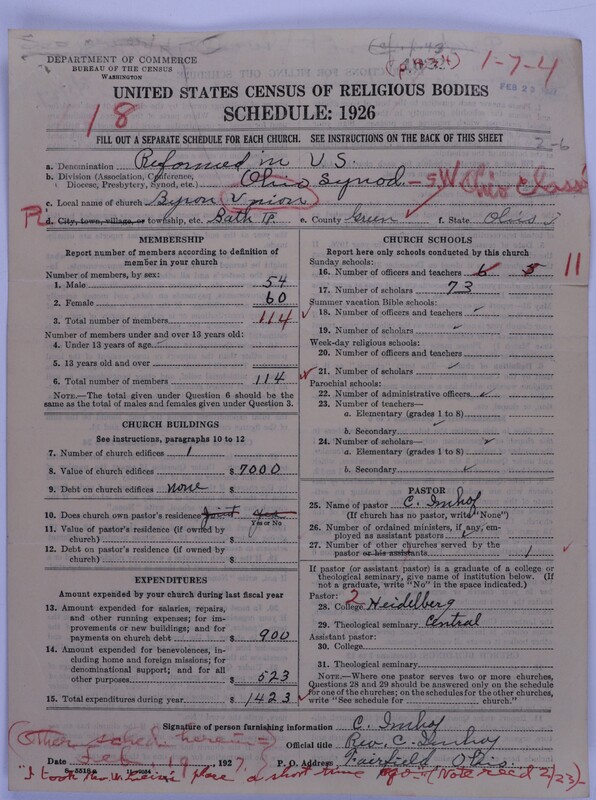 (p. H-3-4)
1-7-4
DEPARTMENT OF COMMERCE
BUREAU OF THE CENSUS
WASHINGTON
FEB 23
UNITED STATES CENSUS OF RELIGIOUS BODIES
18
SCHEDULE: 1926
FILL OUT A SEPARATE SCHEDULE FOR EACH CHURCH. SEE INSTRUCTIONS ON THE BACK OF THIS SHEET
2-6
a. Denomination Reformed in U.S.
b. Division (Association, Conference, Diocese, Presbytery, Synod, etc.) Ohio Synod - SW Ohio Classis
c. Local name of church Byron Union
d. City, town, village, or township, etc. Bath Tp. e. County Green f. State Ohio
MEMBERSHIP
Report number of members according to definition of
member in your church
Number of members, by sex:
1. Male 54
2. Female 60
3. Total number of members 114
Number of members under and over 13 years old:
4. Under 13 years of age
5. 13 years old and over
6. Total number of members 114
NOTE.—The total given under Question 6 should be the
same as the total of males and females given under Question 3.
CHURCH BUILDINGS
See instructions, paragraphs 10 to 12
7. Number of church edifices 1
8. Value of church edifices $7000
9. Debt on church edifices none $
10. Does church own pastor's residence Joint Yes
Yes or No
11. Value of pastor's residence (if owned by
church) $
12. Debt on pastor's residence (if owned by
church) $
EXPENDITURES
Amount expended by your church during last fiscal year
13. Amount expended for salaries, repairs,
and other running expenses; for im-
provements or new buildings; and for
payments on church debt $ 900
14. Amount expended for benevolences,
including home and foreign missions; for
denominational support; and for all
other purposes $ 523
15. Total expenditures during year $ 1423
CHURCH SCHOOLS
Report here only schools conducted by this church
Sunday schools:
16. Number of officers and teachers 6 5 11
17. Number of scholars 73
Summer vacation Bible schools:
18. Number of officers and teachers
19. Number of scholars
Week-day religious schools:
20. Number of officers and teachers
21. Number of scholars
Parochial schools:
22. Number of administrative officers
23. Number of teachers—
a. Elementary (grades 1 to 8)
b. Secondary
24. Number of scholars—
a. Elementary (grades 1 to 8)
b. Secondary
PASTOR
25. Name of pastor C. Imhof
(If church has no pastor, write "None")
26. Number of ordained ministers, if any, em-
ployed as assistant pastors
27. Number of other churches served by the
pastor or his assistants 1
If pastor (or assistant pastor) is a graduate of a college or
theological seminary, give name of institution below. (If
not a graduate, write "No" in the space indicated.)
Pastor: 2
28. College Heidelberg
29. Theological seminary Central
Assistant pastor:
30. College
31. Theological seminary
NOTE.—Where one pastor serves two or more churches,
Questions 28 and 29 should be answered only on the schedule
for one of the churches; on the schedules for the other churches,
write "See schedule for church."
Signature of person furnishing information C. Imhof
(Other sched. herein)
Official title Rev. C. Imhof
Date Feb. 19, 1927. P. O. Address Fairfield, Ohio.
"I took Rev. place a short time ago" (Note rec'd 2/23)